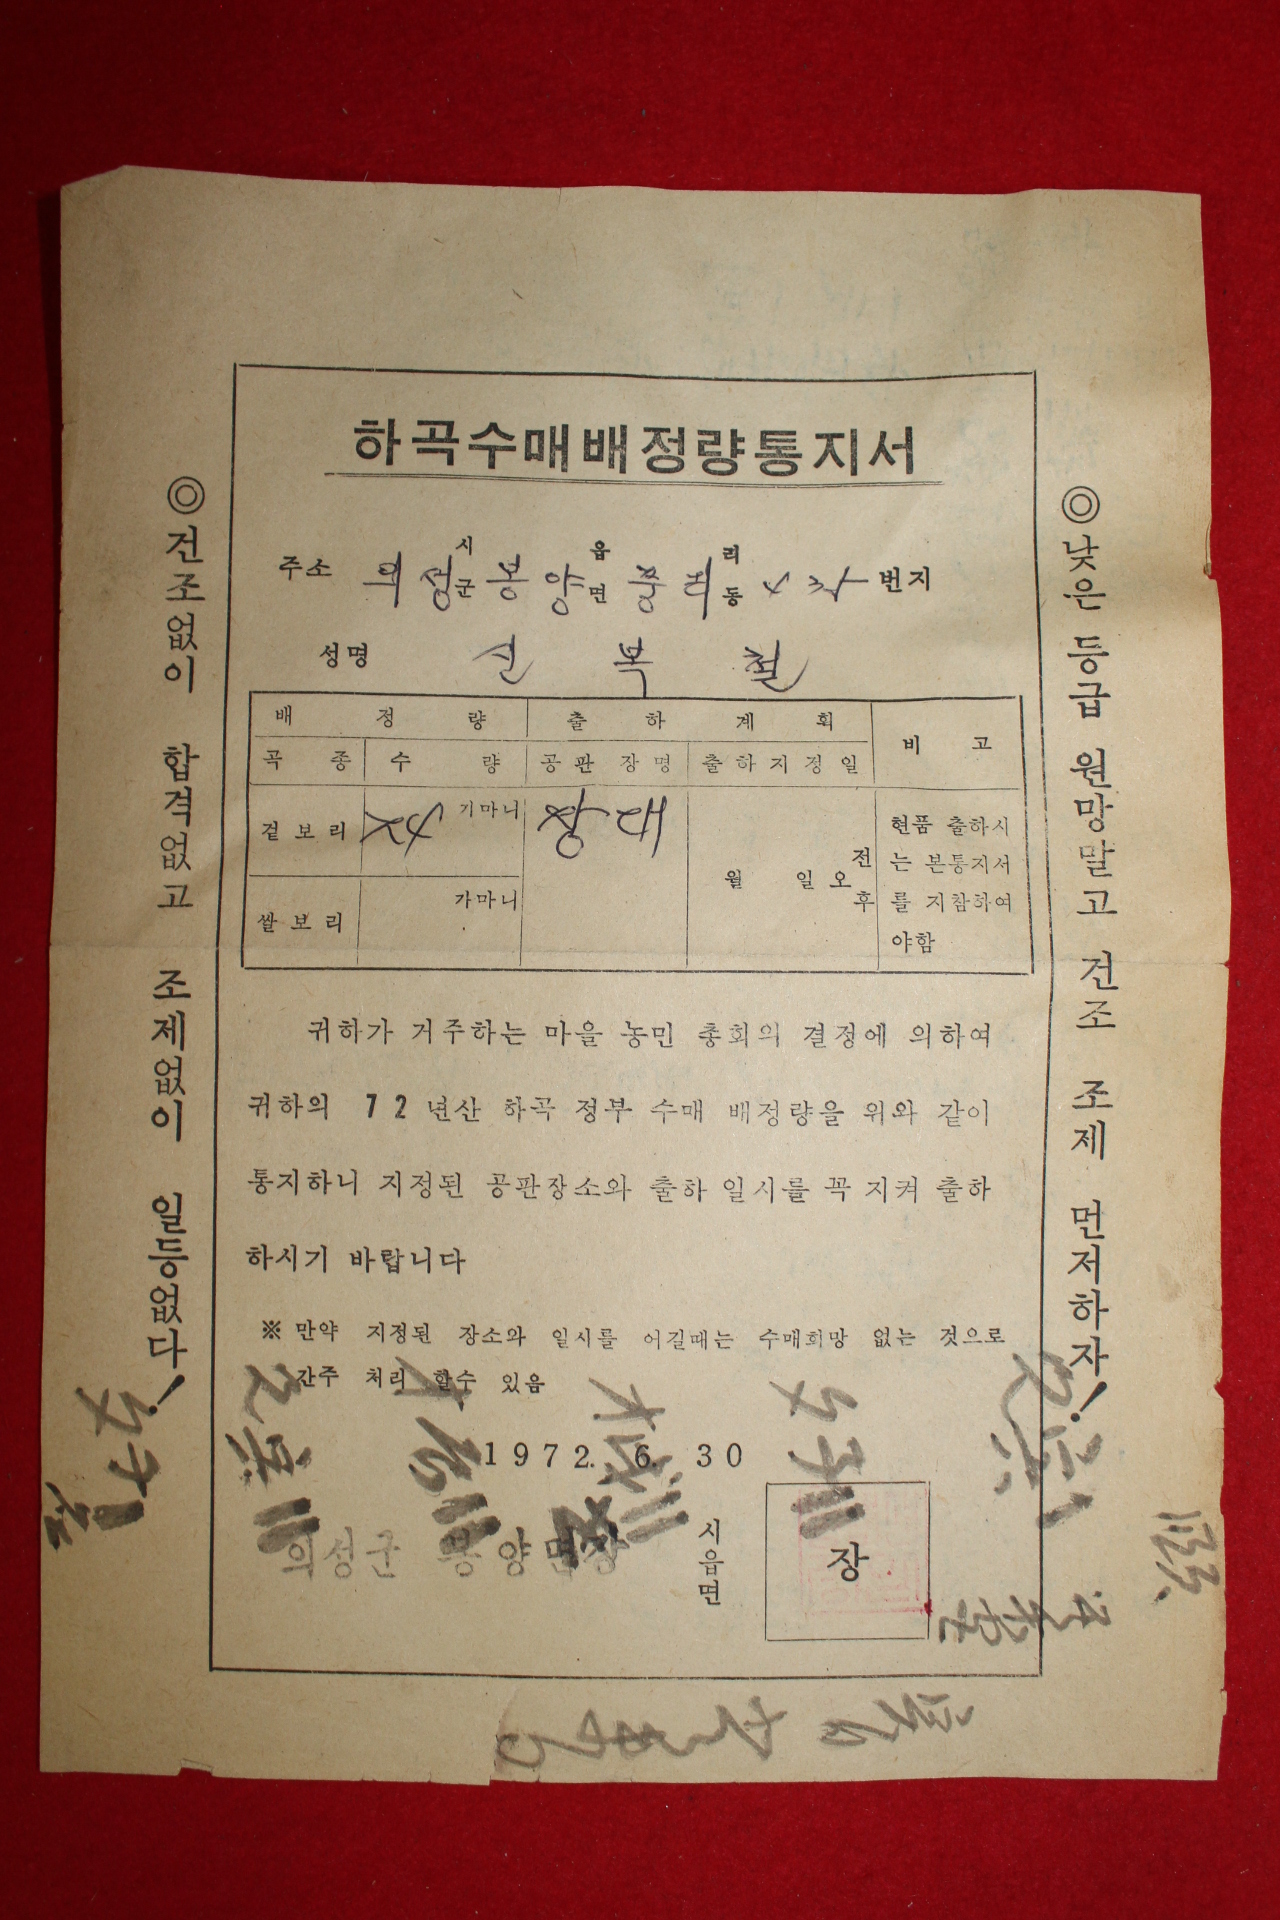 하곡수매배정량통지서
주소 의성 시군 봉양 읍면 풍리 리동 번지
성명 신복철
배정량 출하계획 비고
곡종 수량 공판장명 출하지정일
겉보리 기마니 장대 월 일 오전후 현품 출하시는 본통지서를 지참하여야함
쌀보리 가마니
귀하가 거주하는 마을 농민 총회의 결정에 의하여
귀하의 72년산 하곡 정부 수매 배정량을 위와 같이
통지하니 지정된 공판장소와 출하 일시를 꼭 지켜 출하
하시기 바랍니다
※ 만약 지정된 장소와 일시를 어길때는 수매희망 없는 것으로
간주 처리 할수 있음
1972. 6. 30
의성군 봉양면장 시읍면 장
◎건조없이 합격없고 조제없이 일등없다!
◎낮은 등급 원망말고 건조 조제 먼저하자!